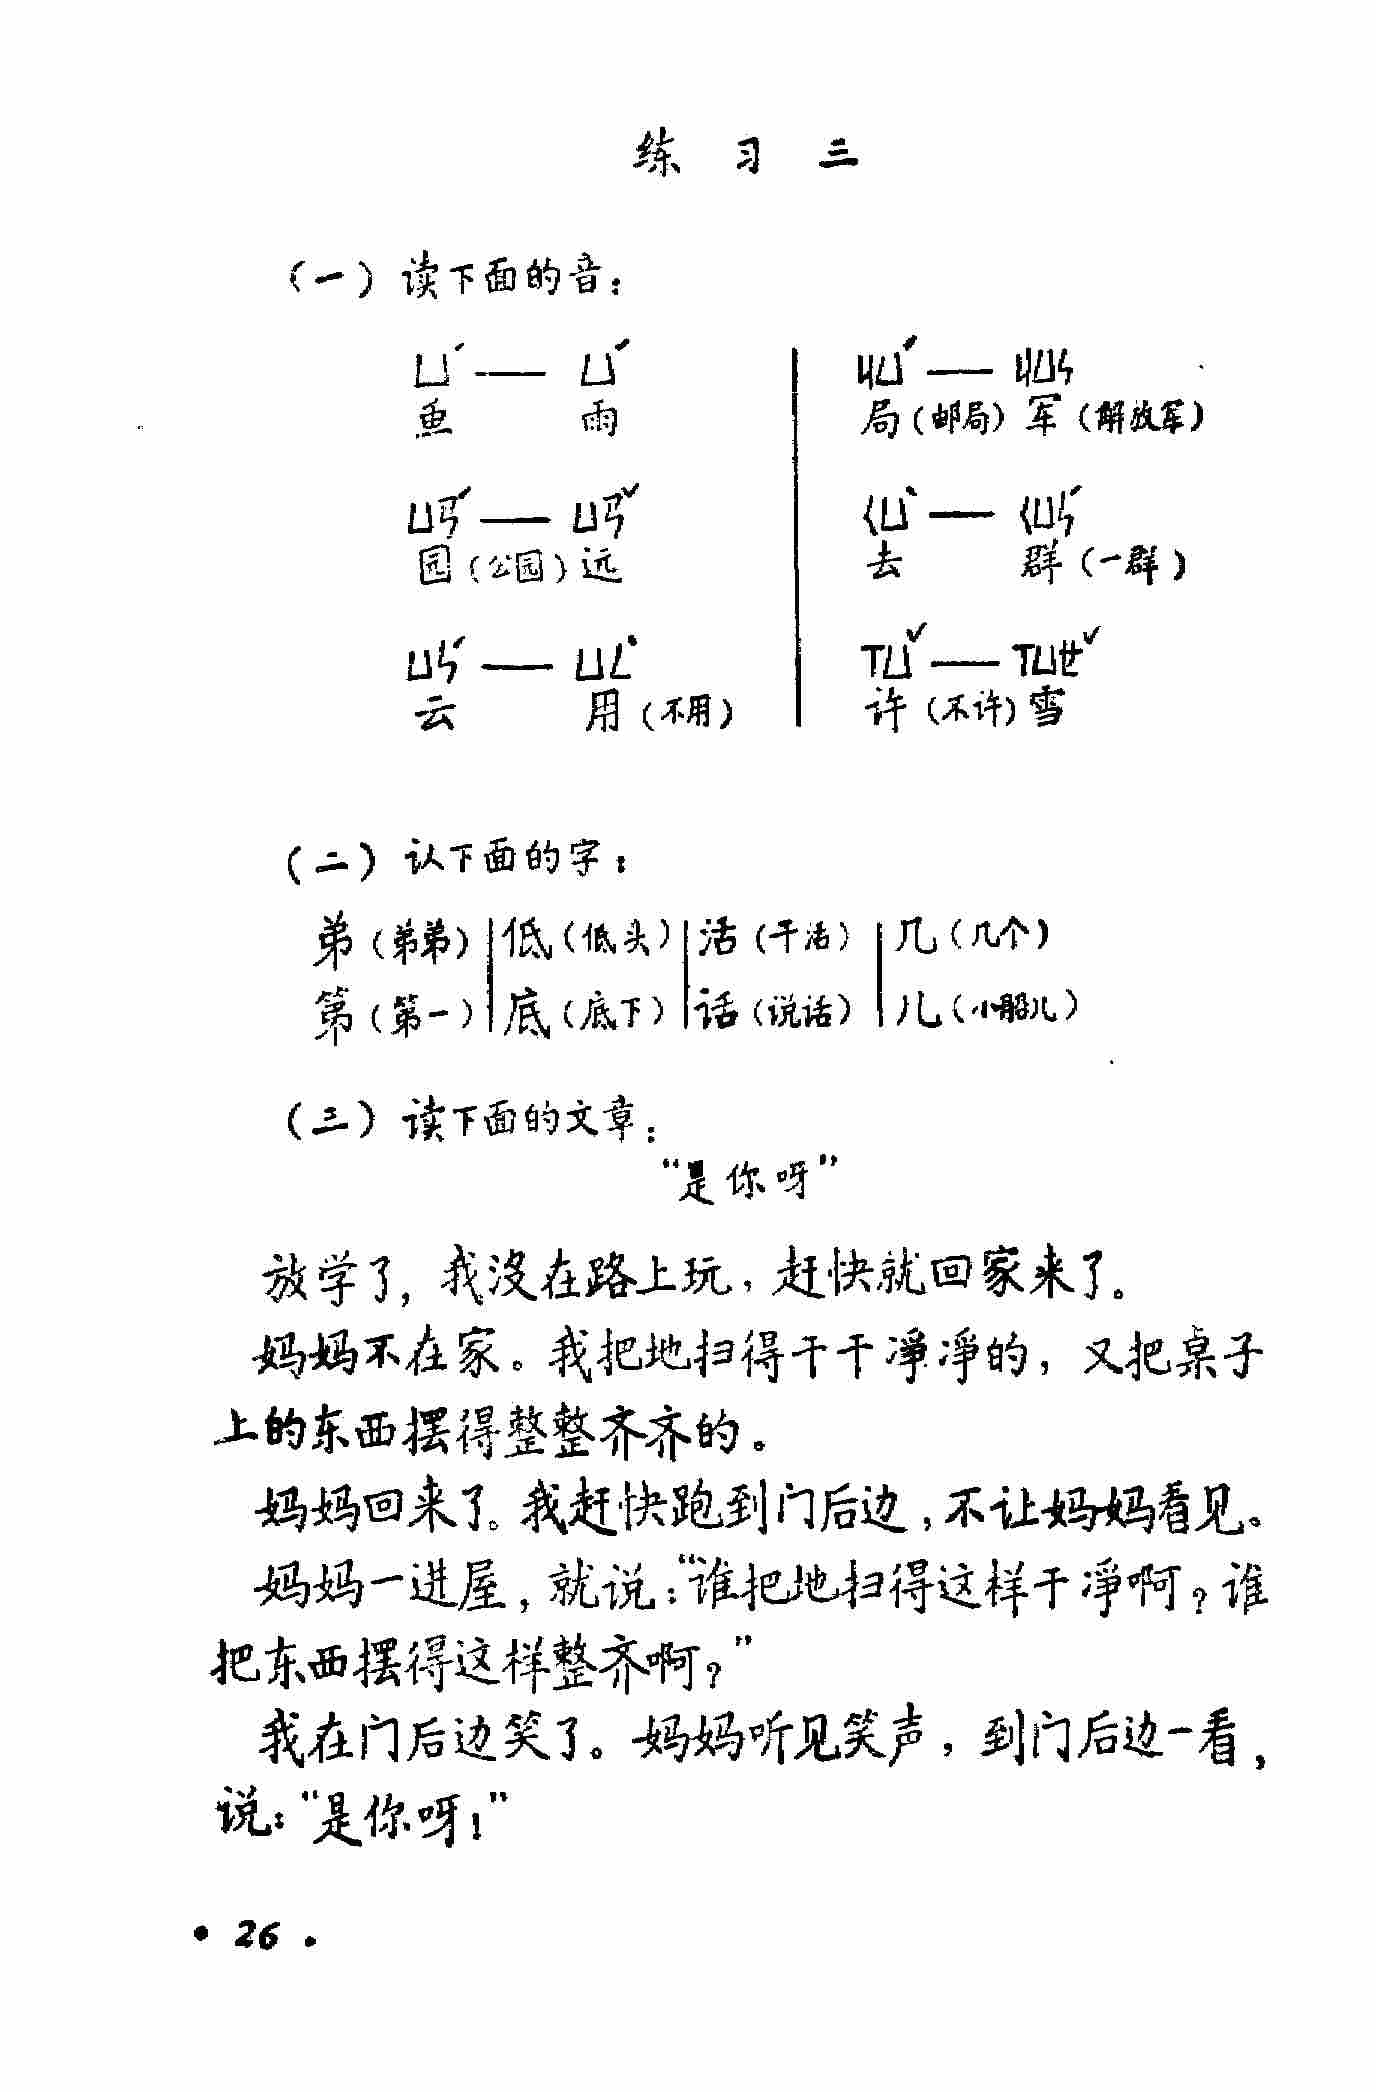 练 习 三
（一）读下面的音：
ㄩˊ —— ㄩˊ ㄐㄩˊ —— ㄐㄩㄣ
鱼 雨 局（邮局）军（解放军）
ㄩㄢˊ —— ㄩㄢˇ ㄑㄩˋ —— ㄑㄩㄣˊ
园（公园）远 去 群（一群）
ㄩㄣˊ —— ㄩㄥˋ ㄒㄩˇ —— ㄒㄩㄝˇ
云 用（不用） 许（不许）雪
（二）认下面的字：
弟（弟弟） 低（低头） 活（干活） 几（几个）
第（第一） 底（底下） 话（说话） 儿（小船儿）
（三）读下面的文章：
“是你呀”
放学了，我没在路上玩，赶快就回家来了。
妈妈不在家。我把地扫得干干凈凈的，又把桌子
上的东西摆得整整齐齐的。
妈妈回来了。我赶快跑到门后边，不让妈妈看见。
妈妈一进屋，就说：“谁把地扫得这样干凈啊？谁
把东西摆得这样整齐啊？”
我在门后边笑了。妈妈听见笑声，到门后边一看，
说：“是你呀！”
• 26 •